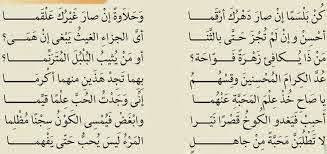 كُنْ بَلْسَمًا إِنْ صَارَ دَهْرُكَ أَرْقَمَا وَحَلاوَةً إِنْ صَارَ غَيْرُكَ عَلْقَمَا
أَحْسِنْ وَإِنْ لَمْ تُجْزَ حَتَّى بِالثَّنَا أَيُّ الجَزَاءِ الغَيْثُ يَبْغِي إِنْ هَمَى؟
مَنْ ذَا يُكَافِئُ زَهْرَةً فَوَّاحَةً؟ أَوْ مَنْ يُثِيبُ البُلْبُلَ المُتَرَنِّمَا؟
عُدَّ الكِرَامَ المُحْسِنِينَ وَقِسْهُمُ بِهِمَا تَجِدْ هَذَيْنِ مِنْهُمْ أَكْرَمَا
يَا صَاحِ خُذْ عِلْمَ المَحَبَّةِ عَنْهُمَا إِنِّي وَجَدْتُ الحُبَّ عِلْمًا قَيِّمَا
أَحْبِبْ فَيَغْدُو الكُوخُ قَصْرًا نَيِّرَا وَابْغَضْ فَيُمْسِي الكَوْنُ سِجْنًا مُظْلِمَا
لا تَطْلُبَنَّ مَحَبَّةً مِنْ جَاهِلٍ المَرْءُ لَيْسَ يُحَبُّ حَتَّى يُفْهَمَا